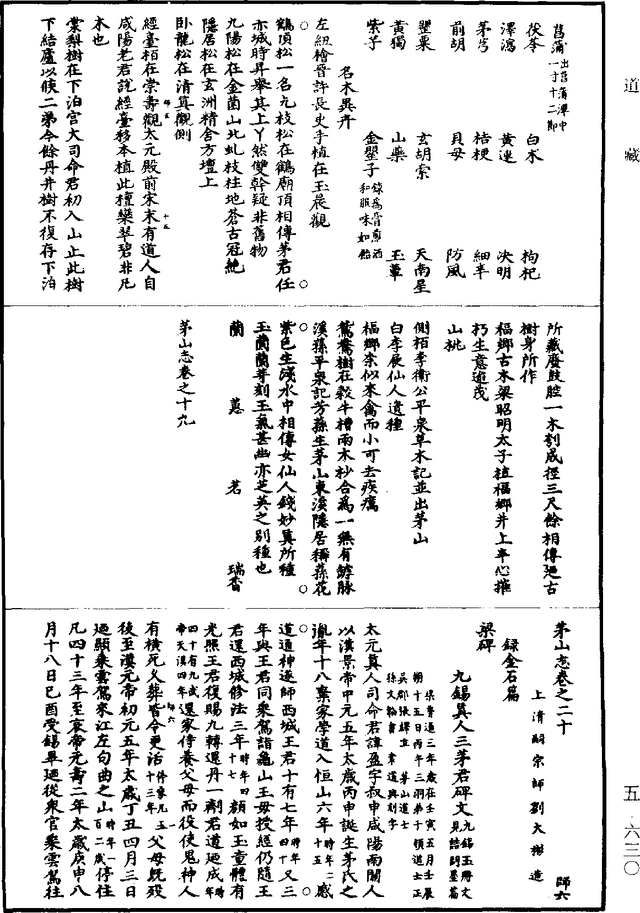 道藏
菖蒲出菖蒲潭中一寸十二節
茯苓 白朮 枸杞
澤瀉 黃連 決明
茅芎 桔梗 細辛
前胡 貝母 防風
罌粟 玄胡索 天南星
黃獨 山藥 玉蕈
紫芋 金罌子
名木異卉
左紐檜晉許長史手植在玉晨觀
鶴頂松一名九枝松在鶴廟頂相傳茅君任
亦城時昇舉其上丫然雙幹疑非舊物
九陽松在金菌山北虬枝柱地蒼古冠絶
隱居松在玄洲精舍方壇上
卧龍松在清真觀側
經臺栢在崇壽觀太元殿前宋末有道人自
咸陽老君說經臺移本植此檀欒翠碧非凡
本也
棠梨樹在下泊宮大司命君初入山止此樹
下結廬以候二弟今餘丹井樹不復存下泊
所藏廢鼓腔一木刳成徑三尺餘相傳廼古
樹身所作
福鄉古木梁昭明太子植福鄉井上半心摧
朽生意遒茂
山桃
側栢李衛公平泉草木記並出茅山
白李展仙人遺種
福鄉柰似來禽而小可去疾癘
鴛鴦樹在穀牛槽兩木杪合為一無有罅脉
溪蓀平泉記芳蓀生茅山東溪隱居稱蓀花
紫色生淺水中相傳女仙人錢妙真所種
玉蘭蘭等刻玉氣甚幽亦芝英之別種也
蘭 蕙 茗 瑞香
茅山志卷之十九
茅山志卷之二十 師六
上清嗣宗師劉大彬造
錄金石篇
梁碑
九錫真人三茅君碑文
太元真人司命君諱盈字叔申咸陽南關人
以漢景帝中元五年太歲丙申誕生茅氏之
胤年十八棄家學道入恒山六年時年二十五感
道通神遂師西城王君十有七年時年四十又三
年與王君同乘駕詣龜山王母授經仍隨王
君還西城修法三年時年四十七顏如玉童體有
光照王君復賜九轉還丹一劑君道廼成
還家侍養父母而役使鬼神人
有橫死火葬皆令更活 父母既歿
後至漢元帝初元五年太歲丁丑四月三日
廼顯乘雲駕來江左句曲之山時年一百二歲停住
凡四十三年至哀帝元壽二年太歲庚申八
月十八日己酉受錫畢廼從衆官乘雲駕往
五-六三〇